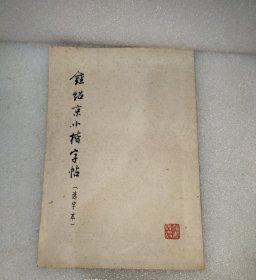 钟绍京小楷字帖
（选字本）